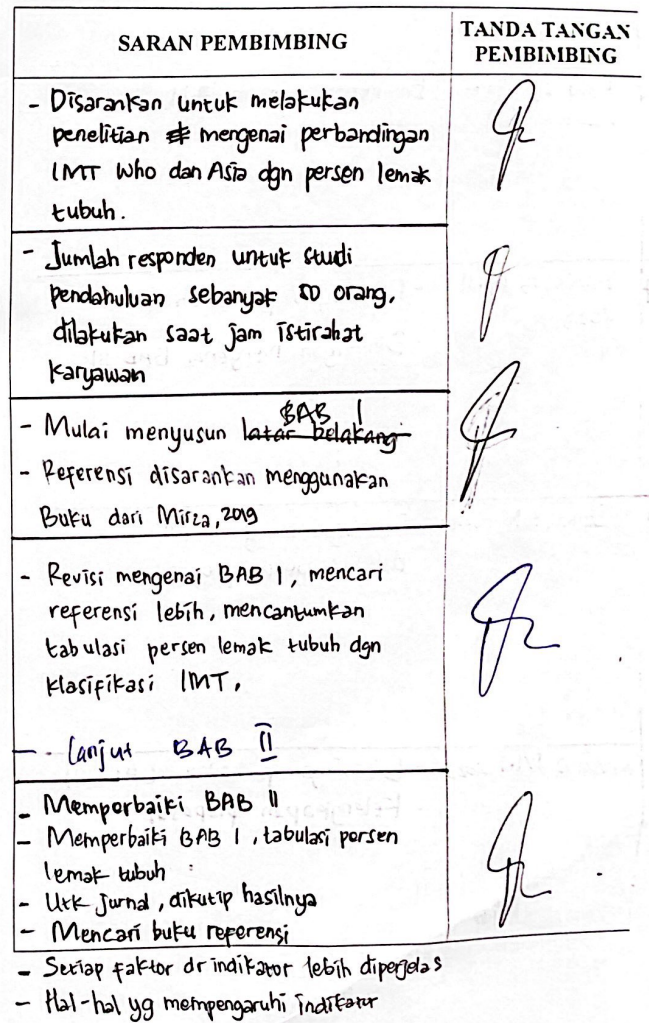 SARAN PEMBIMBING
TANDA TANGAN
PEMBIMBING
- Disarankan untuk melakukan
penelitian mengenai perbandingan
IMT Who dan Asia dgn persen lemak
tubuh.
- Jumlah responden untuk studi
pendahuluan sebanyak orang,
dilakukan saat jam istirahat
karyawan
BAB 1
- Mulai menyusun latar belakang
- Referensi disarankan menggunakan
Buku dari Mirza, 2019
- Revisi mengenai BAB 1, mencari
referensi lebih, mencantumkan
tabulasi persen lemak tubuh dgn
klasifikasi IMT.
- lanjut BAB II
- Memperbaiki BAB II
- Memperbaiki BAB 1, tabulasi persen
lemak tubuh
- Utk Jurnal, dikutip hasilnya
- Mencari buku referensi
- Setiap faktor dr indikator lebih diperjelas
- Hal-hal yg mempengaruhi indikator